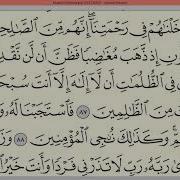 خَلْنَٰهُمْ فِى رَحْمَتِنَآ ۖ إِنَّهُم مِّنَ ٱلصَّٰلِحِ
إِذ ذَّهَبَ مُغَٰضِبًا فَظَنَّ أَن لَّن نَّقْدِ
فِى ٱلظُّلُمَٰتِ أَن لَّآ إِلَٰهَ إِلَّآ أَنتَ سُبْحَ
مِنَ ٱلظَّٰلِمِينَ ٨٧ فَٱسْتَجَبْنَا لَهُۥ
وَكَذَٰلِكَ نُۨجِى ٱلْمُؤْمِنِينَ ٨٨ وَزَ
رَبَّهُۥ رَبِّ لَا تَذَرْنِى فَرْدًا وَأَنتَ خَيْرُ